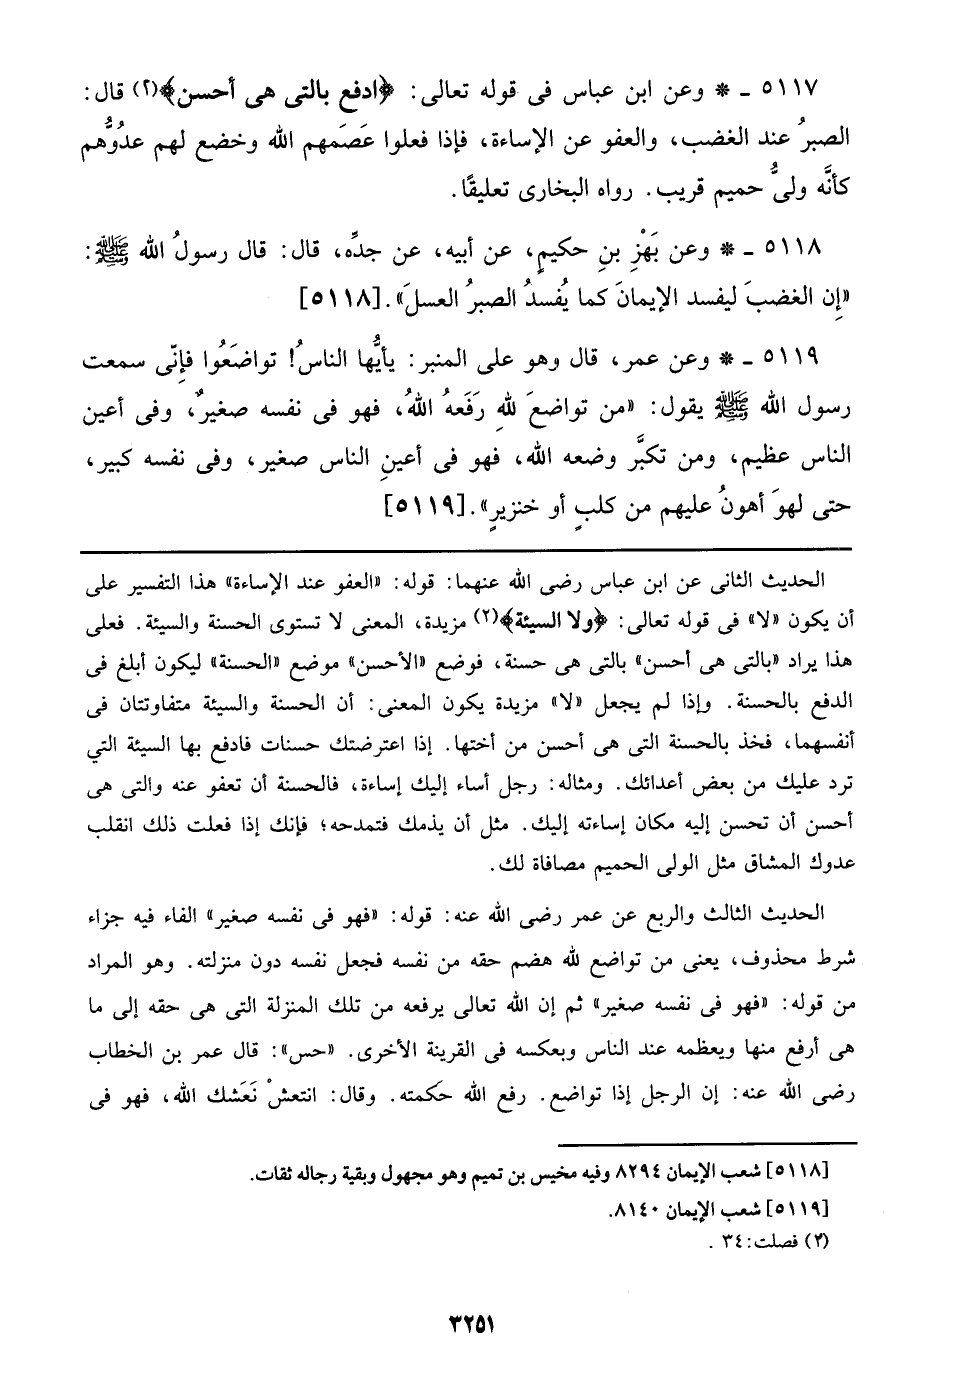 ٥١١٧ ـ * وعن ابن عباس فى قوله تعالى: ﴿ادفع بالتى هى أحسن﴾(٢) قال:
الصبرُ عند الغضب، والعفو عن الإساءة، فإذا فعلوا عَصَمهم الله وخضع لهم عدُوُّهم
كأنَّه ولىُّ حميم قريب. رواه البخارى تعليقًا.
٥١١٨ ـ * وعن بَهْزِ بنِ حكيمٍ، عن أبيه، عن جدِّه، قال: قال رسولُ الله ﷺ:
«إن الغضبَ ليفسد الإيمانَ كما يُفسدُ الصبرُ العسلَ».[٥١١٨]
٥١١٩ ـ * وعن عمر، قال وهو على المنبر: يأيُّها الناسُ! تواضَعُوا فإنّى سمعت
رسول الله ﷺ يقول: «من تواضعَ للهِ رَفَعهُ اللهُ، فهو فى نفسه صغيرٌ، وفى أعين
الناس عظيم، ومن تكبَّر وضعه الله، فهو فى أعينِ الناس صغير، وفى نفسه كبير،
حتى لهوَ أهونُ عليهم من كلبٍ أو خنزيرٍ».[٥١١٩]
الحديث الثانى عن ابن عباس رضى الله عنهما: قوله: «العفو عند الإساءة» هذا التفسير على
أن يكون «لا» فى قوله تعالى: ﴿ولا السيئة﴾(٢) مزيدة، المعنى لا تستوى الحسنة والسيئة. فعلى
هذا يراد «بالتى هى أحسن» بالتى هى حسنة، فوضع «الأحسن» موضع «الحسنة» ليكون أبلغ فى
الدفع بالحسنة. وإذا لم يجعل «لا» مزيدة يكون المعنى: أن الحسنة والسيئة متفاوتتان فى
أنفسهما، فخذ بالحسنة التى هى أحسن من أختها. إذا اعترضتك حسنات فادفع بها السيئة التي
ترد عليك من بعض أعدائك. ومثاله: رجل أساء إليك إساءة، فالحسنة أن تعفو عنه والتى هى
أحسن أن تحسن إليه مكان إساءته إليك. مثل أن يذمك فتمدحه؛ فإنك إذا فعلت ذلك انقلب
عدوك المشاق مثل الولى الحميم مصافاة لك.
الحديث الثالث والربع عن عمر رضى الله عنه: قوله: «فهو فى نفسه صغير» الفاء فيه جزاء
شرط محذوف، يعنى من تواضع لله هضم حقه من نفسه فجعل نفسه دون منزلته. وهو المراد
من قوله: «فهو فى نفسه صغير» ثم إن الله تعالى يرفعه من تلك المنزلة التى هى حقه إلى ما
هى أرفع منها ويعظمه عند الناس وبعكسه فى القرينة الأخرى. «حس»: قال عمر بن الخطاب
رضى الله عنه: إن الرجل إذا تواضع. رفع الله حَكمته. وقال: انتعشْ نَعَشك الله، فهو فى
[٥١١٨] شعب الإيمان ٨٢٩٤ وفيه مخيس بن تميم وهو مجهول وبقية رجاله ثقات.
[٥١١٩] شعب الإيمان ٨١٤٠.
(٢) فصلت: ٣٤ .
٣٢٥١